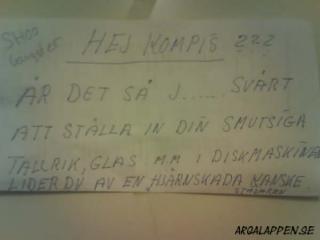 HEJ KOMPIS ???
ÄR DET SÅ J...... SVÅRT
ATT STÄLLA IN DIN SMUTSIGA
TALLRIK, GLAS MM I DISKMASKINEN
LIDER DU AV EN HJÄRNSKADA KANSKE
STÄDAREN
ARGALAPPEN.SE